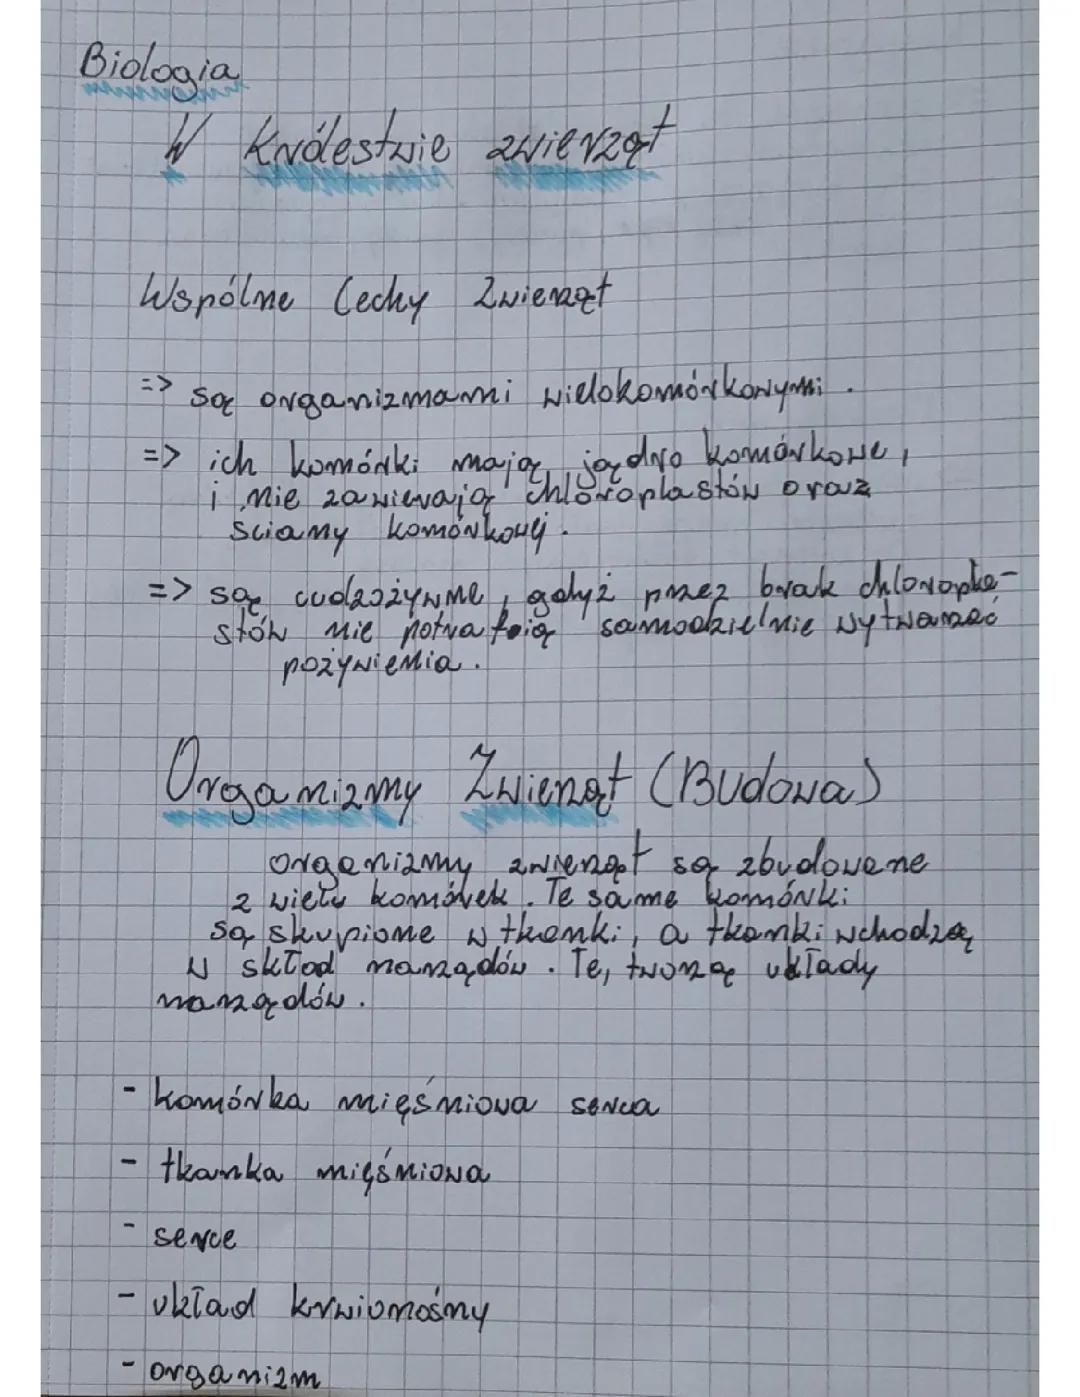 Biologia
W Królestwie zwierząt
Wspólne Cechy Zwierząt
=> są organizmami wielokomórkowymi.
=> ich komórki mają jądro komórkowe,
i nie zawierają chloroplastów oraz
ściany komórkowej.
=> są cudzożywne, gdyż przez brak chloropla-
stów nie potrafią samodzielnie wytwarzać
pożywienia.
Organizmy Zwierząt (Budowa)
organizmy zwierząt są zbudowane
z wielu komórek. Te same komórki
są skupione w tkanki, a tkanki wchodzą
w skład narządów. Te, tworzą układy
narządów.
- komórka mięśniowa serca
- tkanka mięśniowa
- serce
- układ krwionośny
- organizm